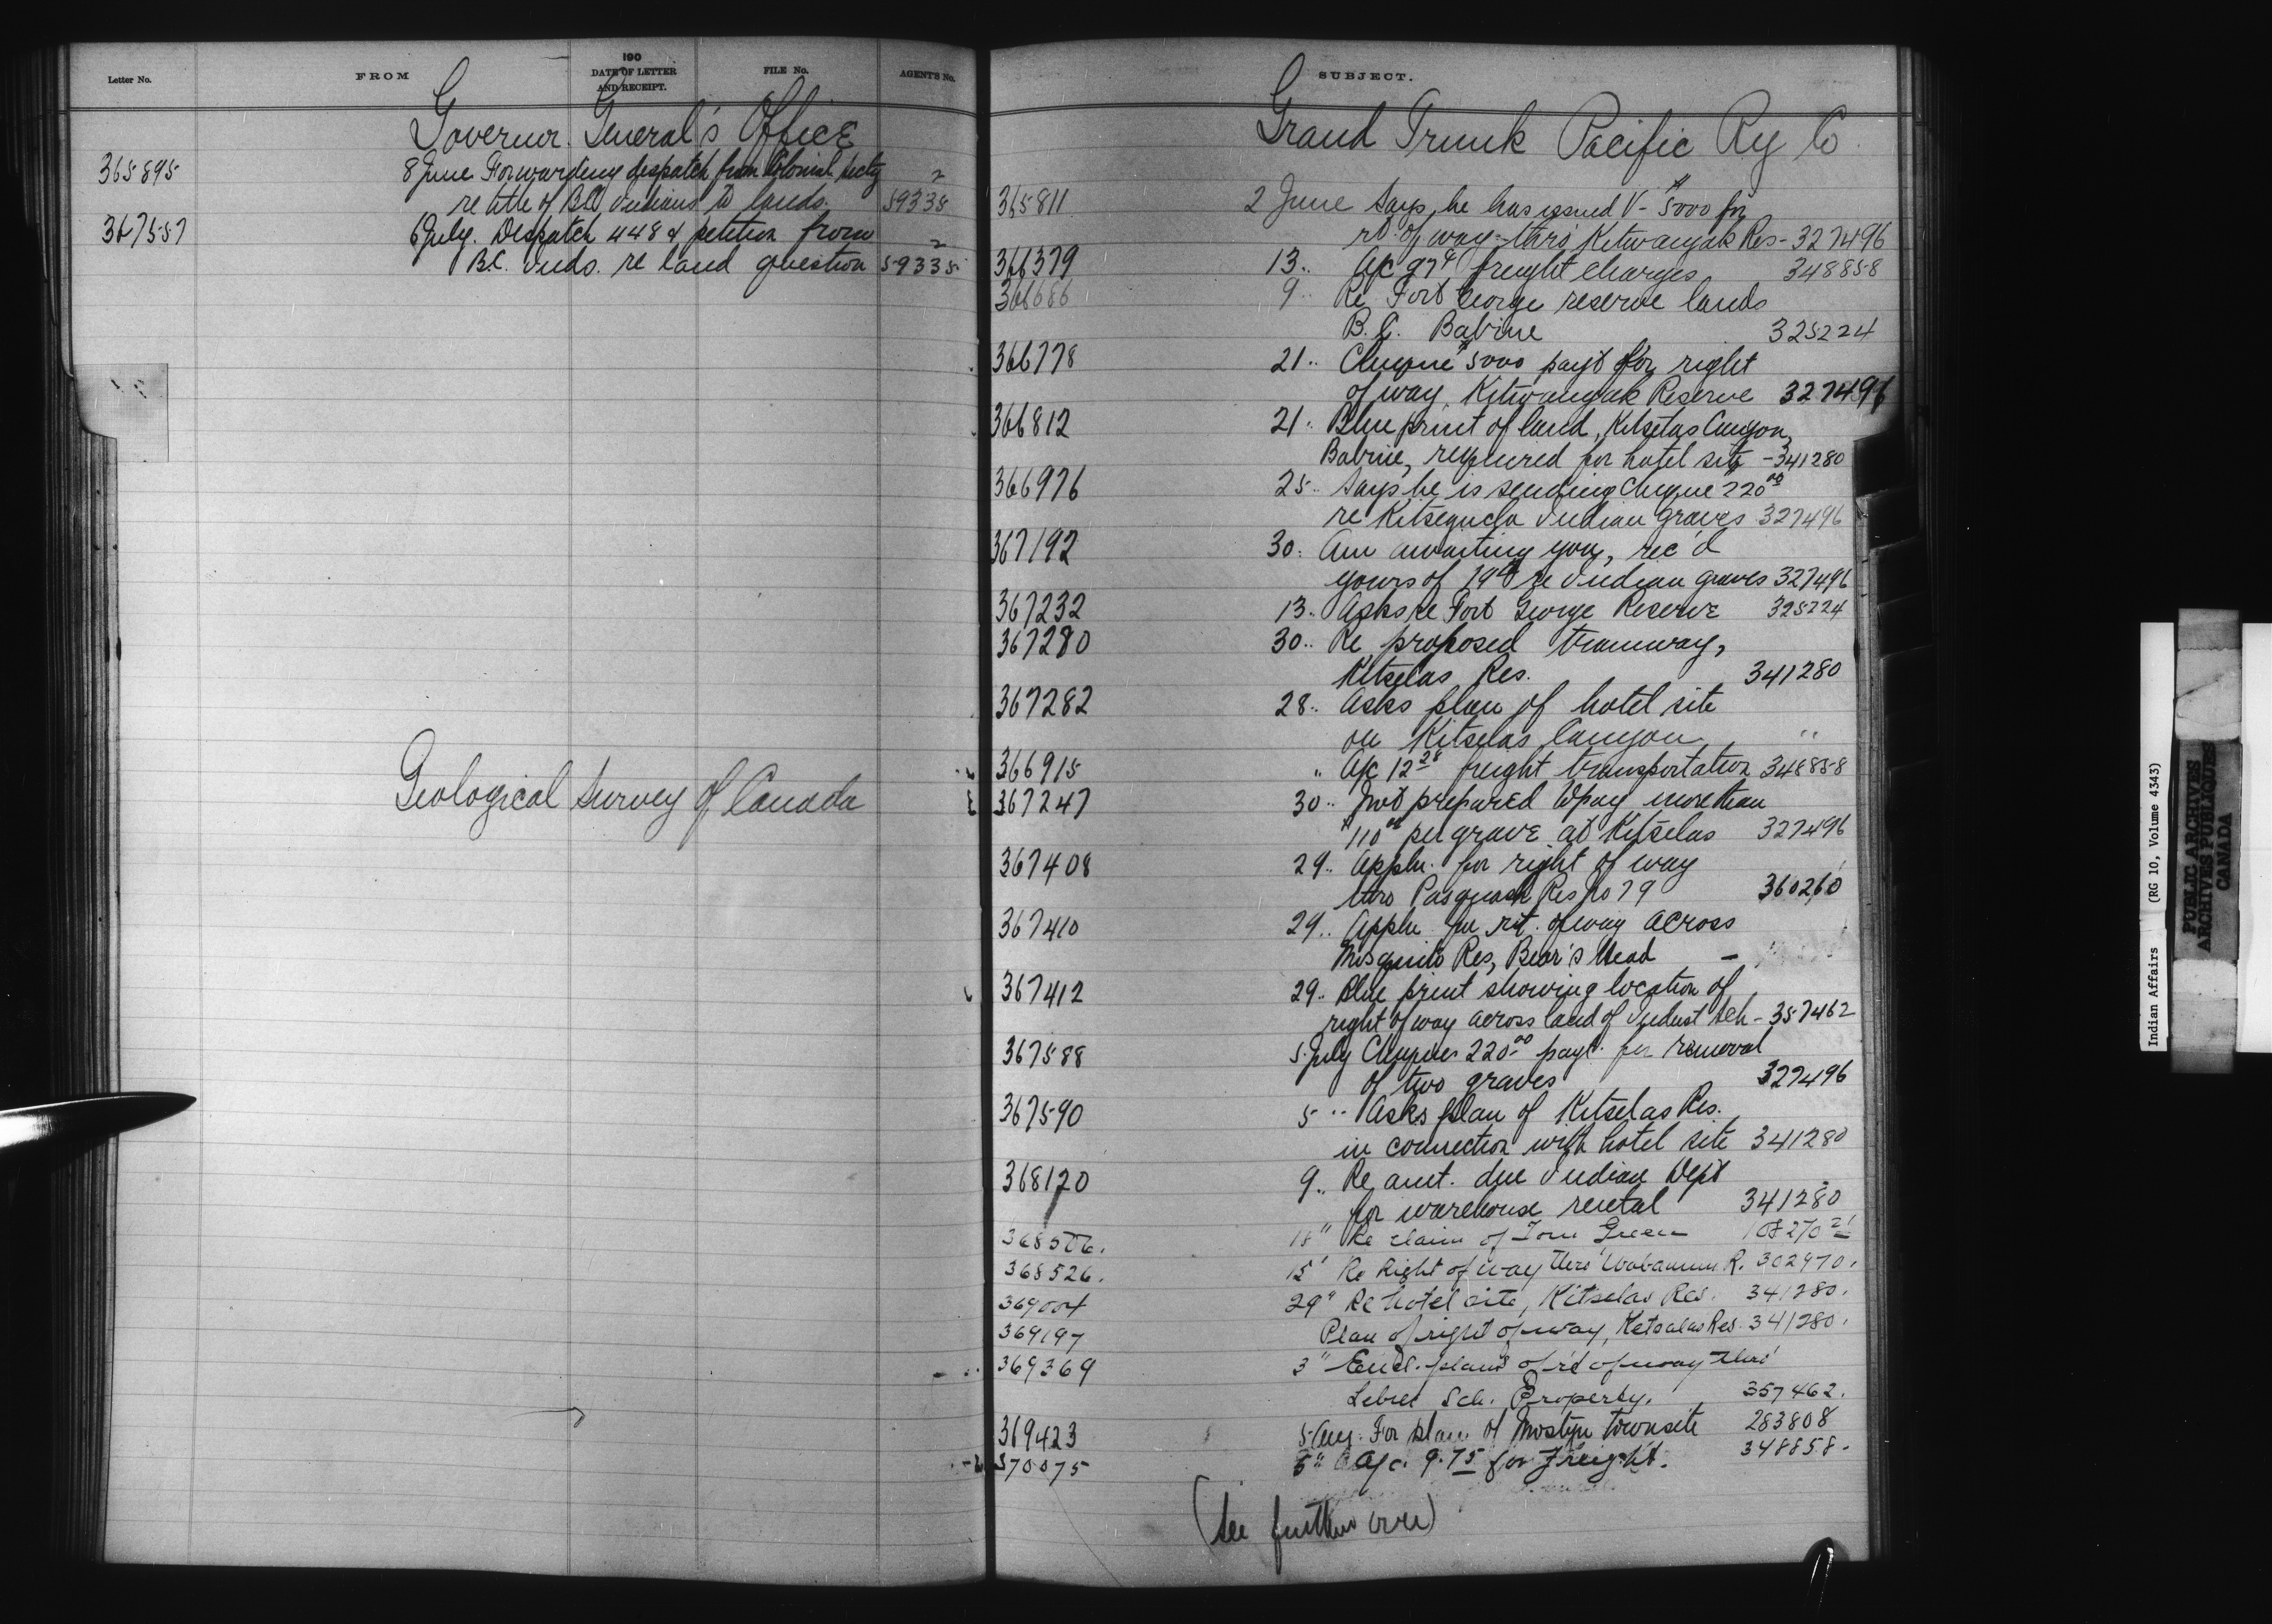 Letter No.
FROM
190
DATE OF LETTER
AND RECEIPT.
FILE No.
AGENT'S No.
Governor General's Office
365895
8 June Forwarding despatch from Colonial Secty
re title of B.C. Indians to lands. 59335
2
367557
6 July. Despatch 448 & petition from
B.C. Inds. re land question 59335
2
Geological Survey of Canada
SUBJECT.
Grand Trunk Pacific Ry Co.
365811 2 June Says he has issued V- $5000 for
rt. of way thro' Kitwangak Res- 327496
366379 13.. a/c 97¢ freight charges 348858
366686 9.. Re Fort George reserve lands
B.C. Babine 325224
366778 21.. Cheque $5000 pay't for right
of way, Kitwangak Reserve 327496
366812 21.. Blue print of land, Kitselas Canyon,
Babine, required for hotel site - 341280
366976 25.. Says he is sending cheque 220 00
re Kitseguela Indian graves 327496
367192 30.. Am awaiting you, rec'd
yours of 19th re Indian graves 327496
367232 13.. Asks re Fort George Reserve 325224
367280 30.. Re proposed tramway,
Kitselas Res. 341280
367282 28.. Asks plan of hotel site
on Kitselas Canyon "
366915 " a/c 12 28 freight transportation 348858
367247 30.. Not prepared to pay more than
$110 00 per grave at Kitselas 327496
367408 29.. Appln. for right of way
thro Pasquah Res No 79 360260
367410 29.. Appln for rt. of way across
Mosquito Res, Bear's Head -
367412 29.. Blue print showing location of
right of way across land of Indust Sch - 357462
367588 5 July Cheques 220 00 payt. for removal
of two graves 327496
367590 5 .. Asks plan of Kitselas Res.
in connection with hotel site 341280
368120 9.. Re amt. due Indian Dept
for warehouse rental 341280
368506. 18" Re claim of Tom Green
368526. 15" Re Right of way thro' Wabamun R. 302970.
369004 29" Re hotel site, Kitselas Res. 341280.
369197 Plan of right of way, Kitsalas Res. 341280.
369369 3" Encl. plans of rt of way thro'
Lebret Sch. Property. 357462.
369423 5 Aug. For plan of Mostyn townsite 283808
370075 6" a/c. 9.75 for freight. 348858.
(See further over)
Indian Affairs (RG 10, Volume 4343)
PUBLIC ARCHIVES
ARCHIVES PUBLIQUES
CANADA